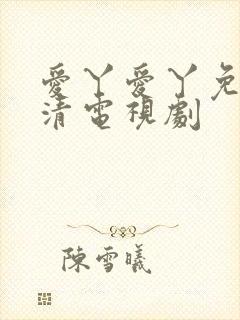 愛丫愛丫免
清電視劇
陳雪曦